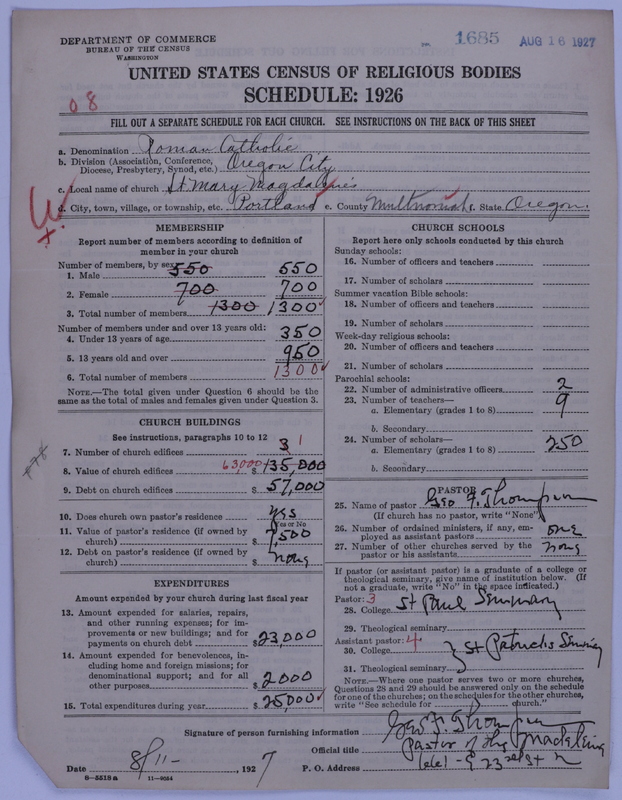 DEPARTMENT OF COMMERCE
BUREAU OF THE CENSUS
WASHINGTON
1685 AUG 16 1927
UNITED STATES CENSUS OF RELIGIOUS BODIES
SCHEDULE: 1926
08
FILL OUT A SEPARATE SCHEDULE FOR EACH CHURCH. SEE INSTRUCTIONS ON THE BACK OF THIS SHEET
a. Denomination Roman Catholic
b. Division (Association, Conference, Diocese, Presbytery, Synod, etc.) Oregon City
c. Local name of church St Mary Magdalenes
d. City, town, village, or township, etc. Portland e. County Multnomah f. State Oregon
MEMBERSHIP
Report number of members according to definition of
member in your church
Number of members, by sex:
1. Male 550 550
2. Female 700 700
3. Total number of members 1300 1300
Number of members under and over 13 years old:
4. Under 13 years of age 350
5. 13 years old and over 950
6. Total number of members 1300
NOTE.—The total given under Question 6 should be the
same as the total of males and females given under Question 3.
CHURCH BUILDINGS
See instructions, paragraphs 10 to 12
7. Number of church edifices 3 1
8. Value of church edifices 63,000 $ 135,000
9. Debt on church edifices $ 57,000
10. Does church own pastor's residence yes
Yes or No
11. Value of pastor's residence (if owned by
church) $ 7,500
12. Debt on pastor's residence (if owned by
church) $ none
EXPENDITURES
Amount expended by your church during last fiscal year
13. Amount expended for salaries, repairs,
and other running expenses; for im-
provements or new buildings; and for
payments on church debt $ 23,000
14. Amount expended for benevolences, in-
cluding home and foreign missions; for
denominational support; and for all
other purposes $ 2000
15. Total expenditures during year $ 25,000
CHURCH SCHOOLS
Report here only schools conducted by this church
Sunday schools:
16. Number of officers and teachers
17. Number of scholars
Summer vacation Bible schools:
18. Number of officers and teachers
19. Number of scholars
Week-day religious schools:
20. Number of officers and teachers
21. Number of scholars
Parochial schools:
22. Number of administrative officers 2
23. Number of teachers—
a. Elementary (grades 1 to 8) 9
b. Secondary
24. Number of scholars—
a. Elementary (grades 1 to 8) 250
b. Secondary
PASTOR
25. Name of pastor Geo F. Thompson
(If church has no pastor, write "None")
26. Number of ordained ministers, if any, em-
ployed as assistant pastors one
27. Number of other churches served by the
pastor or his assistants none
If pastor (or assistant pastor) is a graduate of a college or
theological seminary, give name of institution below. (If
not a graduate, write "No" in the space indicated.)
Pastor: 3
28. College St Paul Seminary
29. Theological seminary
Assistant pastor: 4
30. College St Patricks Seminary
31. Theological seminary
NOTE.—Where one pastor serves two or more churches,
Questions 28 and 29 should be answered only on the schedule
for one of the churches; on the schedules for the other churches,
write "See schedule for church."
Signature of person furnishing information Geo. F. Thompson
Official title Pastor of the Madeleine
Date 8/11- 1927 P. O. Address E 23rd St N
8-5518a 11-9054